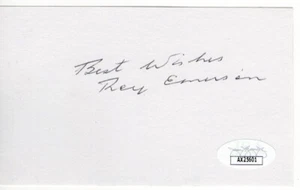 Best Wishes
Roy Emerson
AX23601